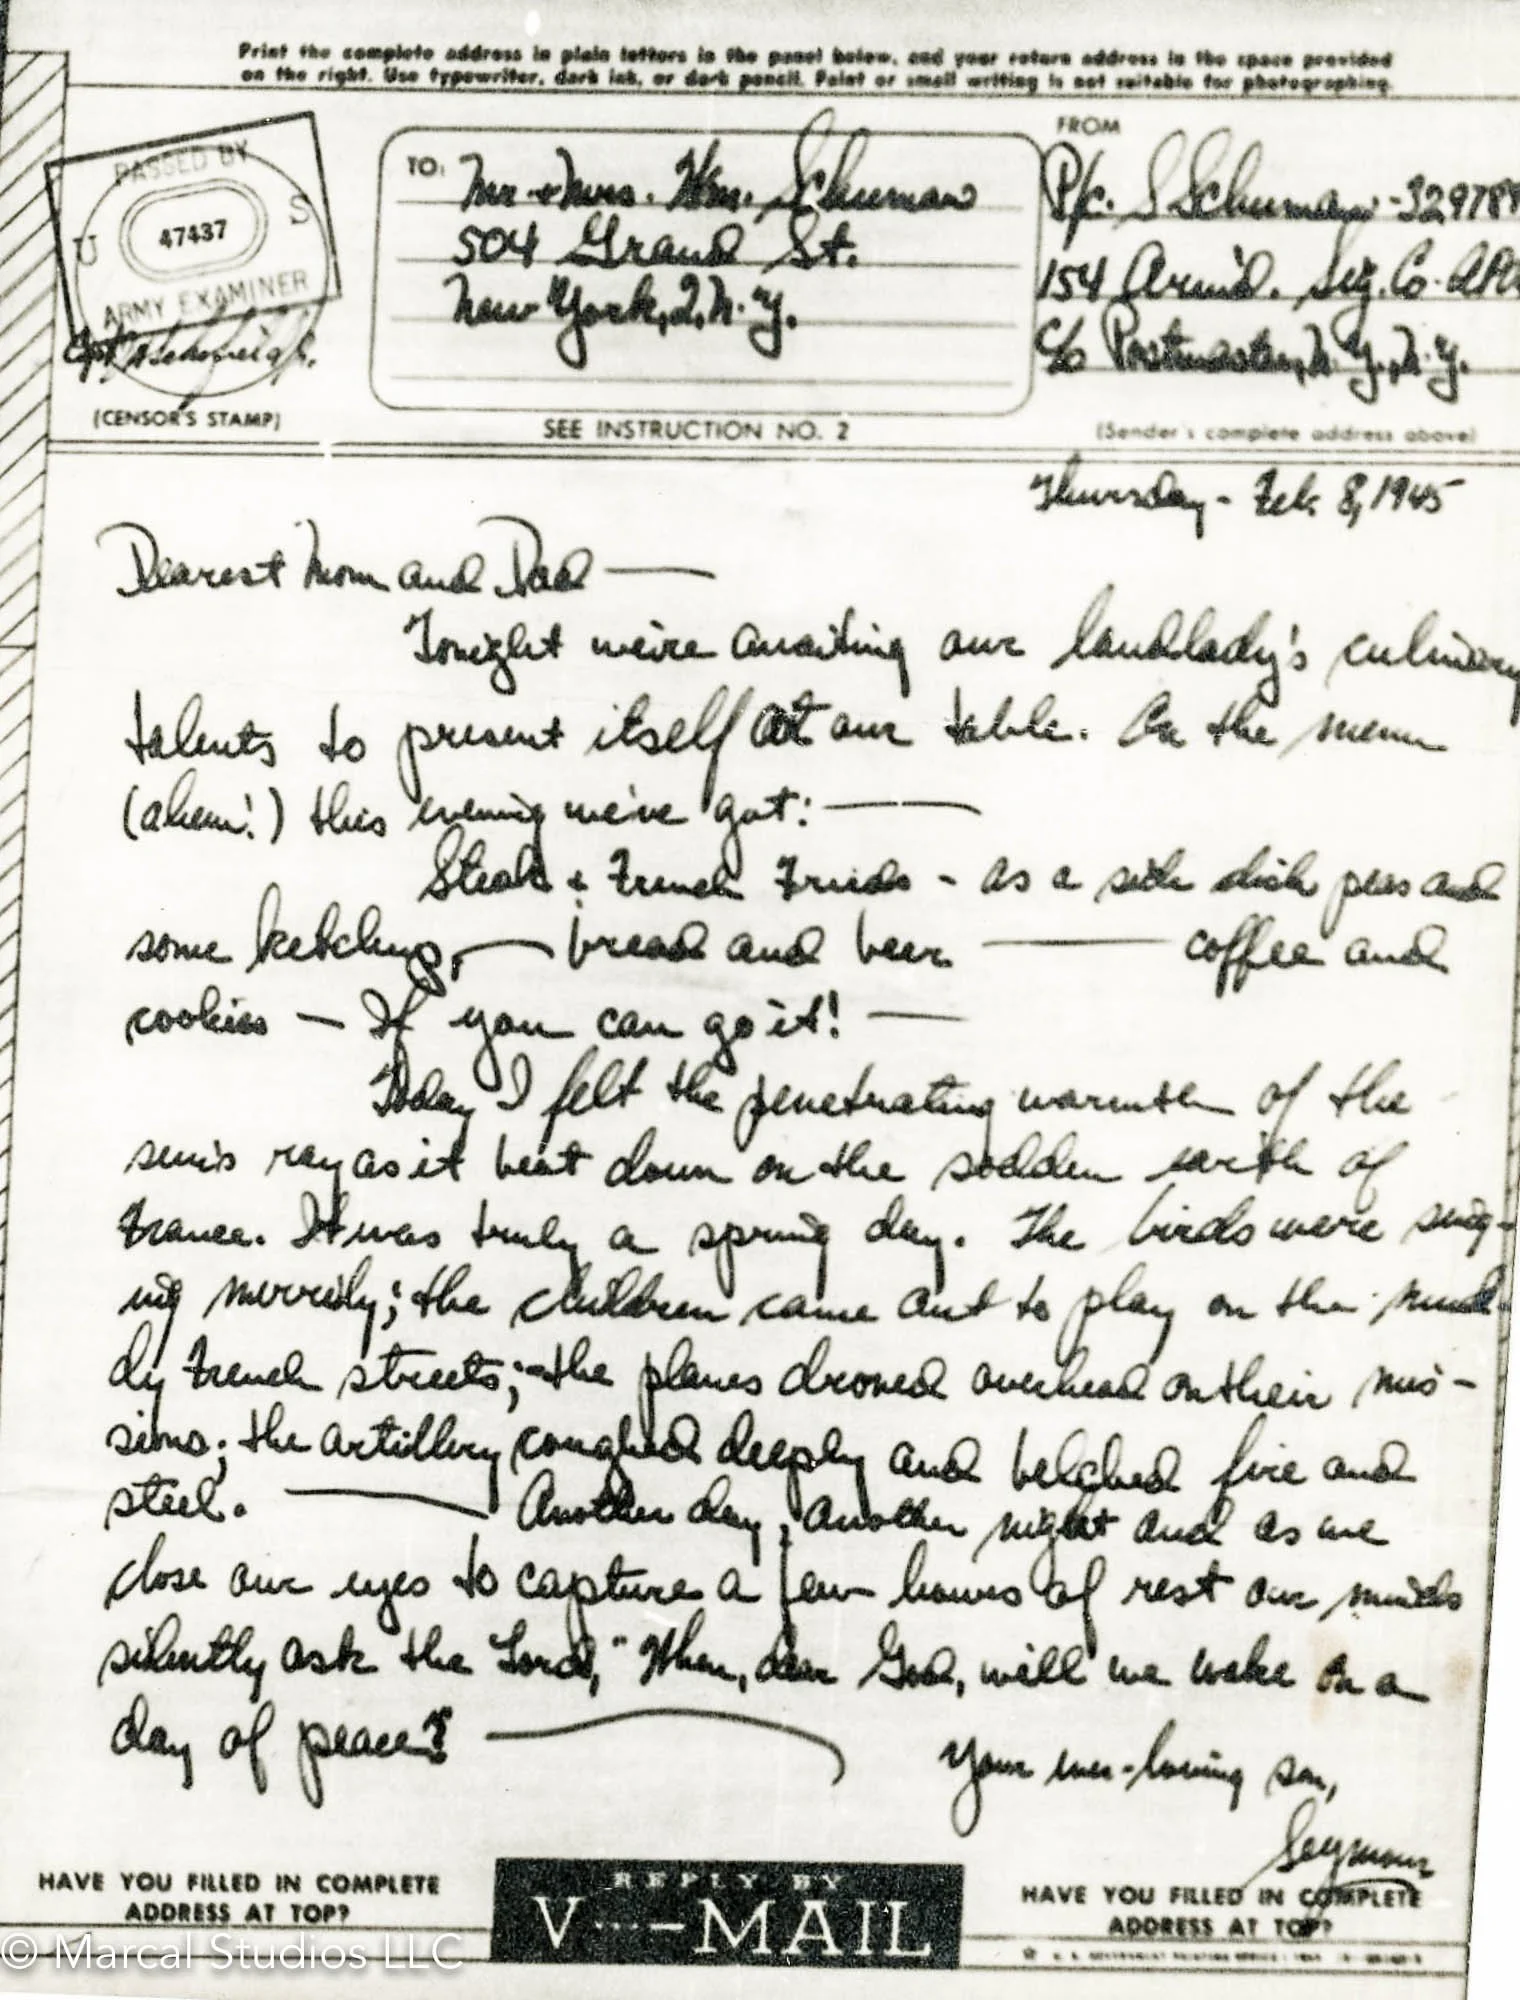 Print the complete address in plain letters in the panel below, and your return address in the space provided
on the right. Use typewriter, dark ink, or dark pencil. Faint or small writing is not suitable for photographing.
PASSED BY
U S
47437
ARMY EXAMINER
(CENSOR'S STAMP)
TO:
Mr. & Mrs. Wm. Schuman
504 Grand St.
New York, 2, N.Y.
SEE INSTRUCTION NO. 2
FROM
Pfc. S Schuman - 329789
154 Arm'd. Sig. Co. APO
c/o Postmaster, N.Y., N.Y.
(Sender's complete address above)
Thursday - Feb. 8, 1945
Dearest Mom and Dad —
Tonight we're awaiting our landlady's culinary
talents to present itself at our table. On the menu
(ahem!) this evening we've got: —
Steak & French Frieds - as a side dish peas and
some ketchup, — bread and beer — coffee and
cookies — If you can go it! —
Today I felt the penetrating warmth of the
sun's ray as it beat down on the sodden earth of
France. It was truly a spring day. The birds were sing-
ing merrily; the children came out to play on the mud-
dy French streets; the planes droned overhead on their mis-
sions; the artillery coughed deeply and belched fire and
steel. — Another day, another night and as we
close our eyes to capture a few hours of rest our minds
silently ask the Lord, "When, dear God, will we wake on a
day of peace?" —
Your ever-loving son,
Seymour
HAVE YOU FILLED IN COMPLETE
ADDRESS AT TOP?
REPLY BY
V···—MAIL
HAVE YOU FILLED IN COMPLETE
ADDRESS AT TOP?
☆ U. S. GOVERNMENT PRINTING OFFICE :
© Marcal Studios LLC